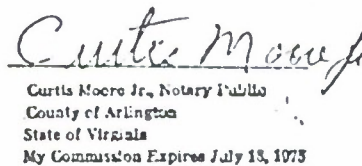 Curtis Moore Jr
Curtis Moore Jr., Notary Public
County of Arlington
State of Virginia
My Commission Expires July 13, 1975